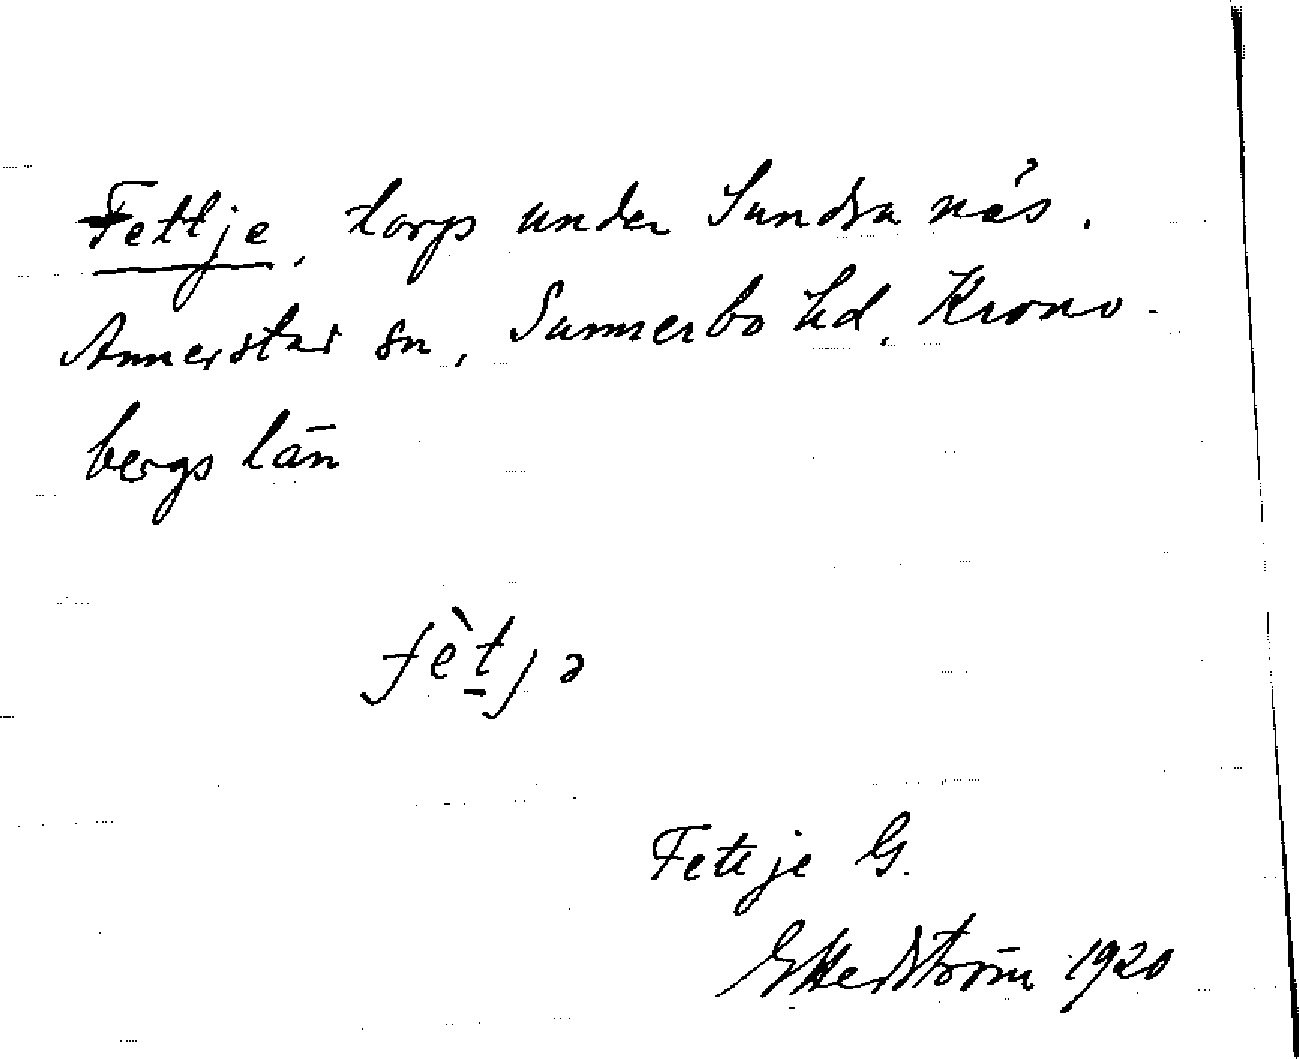 Fettje, torp under Sundra näs.
Annerstad sn, Sunnerbo hd, Krono-
bergs län
fètjə
Fettje G.
E Hedström 1920